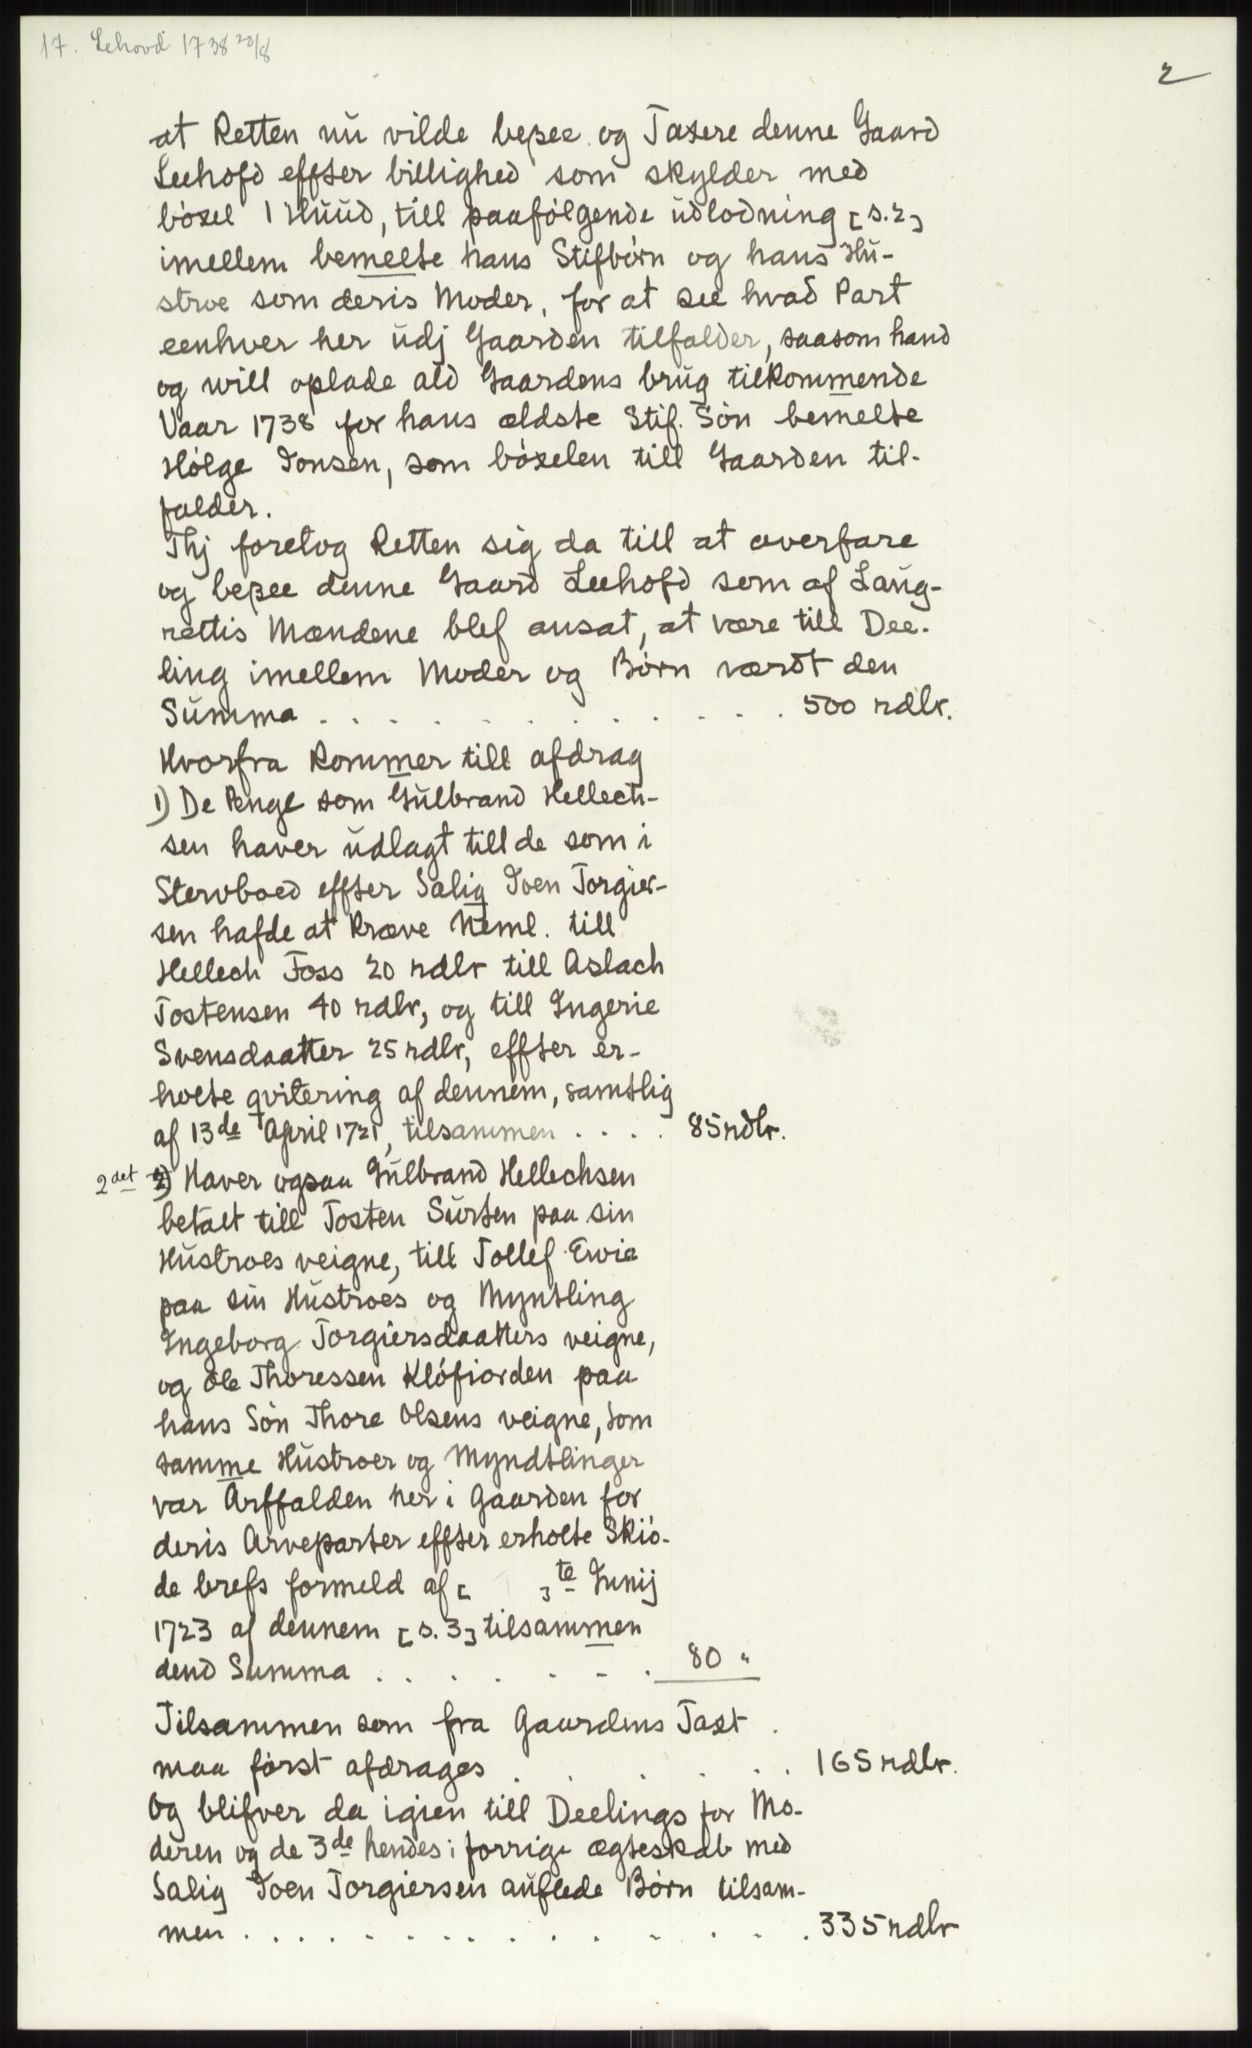 17. Lehovd 1738 20/8
2
at Retten nu vilde besee og Taxere denne Gaard
Leehofd effter billighed som skylder med
böxel 1 Huud, till paafölgende udlodning [s.2]
imellem bemelte hans Stifbörn og hans Hu-
stroe som deris Moder, for at see hvad Part
eenhver her udj Gaarden tilfalder, saasom hand
og will oplade ald Gaardens brug tilkommende
Vaar 1738 for hans ældste Stif. Sön bemelte
Hölge Jonsen, som böxelen till Gaarden til-
falder.
Thj foretog Retten sig da till at overfare
og besee denne Gaard Leehofd som af Laug-
rettis Mændene blef ansat, at være till Dee-
ling imellem Moder og Börn værdt den
Summa . . . . . . . . . . . . 500 rdlr.
Hvorfra Kommer till afdrag
1) De Penge som Gulbrand Hellech-
sen haver udlagt till de som i
Stervboed effter Salig Joen Torgier-
sen hafde at Kræve Neml. till
Hellech Foss 20 rdlr till Aslach
Tostensen 40 rdlr, og till Ingerie
Svensdaatter 25 rdlr, effter er-
holte qvitering af dennem, samtlig
af 13de April 1721, tilsammen . . . . 85 rdlr.
2det 2) Haver ogsaa Gulbrand Hellechsen
betalt till Tosten Surten paa sin
Hustroes veigne, till Tollef Evie
paa sin Hustroes og Myntling
Ingeborg Torgiersdaatters veigne,
og Ole Thoressen Klöfiorden paa
hans Sön Thore Olsens veigne, som
samme Hustroer og Myndtlinger
var Arffalden her i Gaarden for
deris Arveparter effter erholte Skiö-
de brefs formeld af [ ]te Junij
1723 af dennem [s. 3] tilsammen
dend Summa . . . . . . . 80 "
Tilsammen som fra Gaardens Taxt .
maa först afdrages . . . . . . 165 rdlr.
Og blifver da igien till Deelings for Mo-
deren og de 3de hendes i forrige ægteskab med
Salig Joen Torgiersen auflede Börn tilsam-
men . . . . . . . . . . . . . 335 rdlr